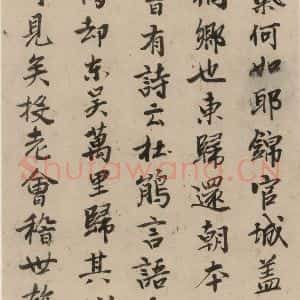 氣何如耶錦官城蓋
鄉也東歸還朝本
有詩云杜鵑言語
却東吳萬里歸其
見矣投老會稽世
Shufawang.CN